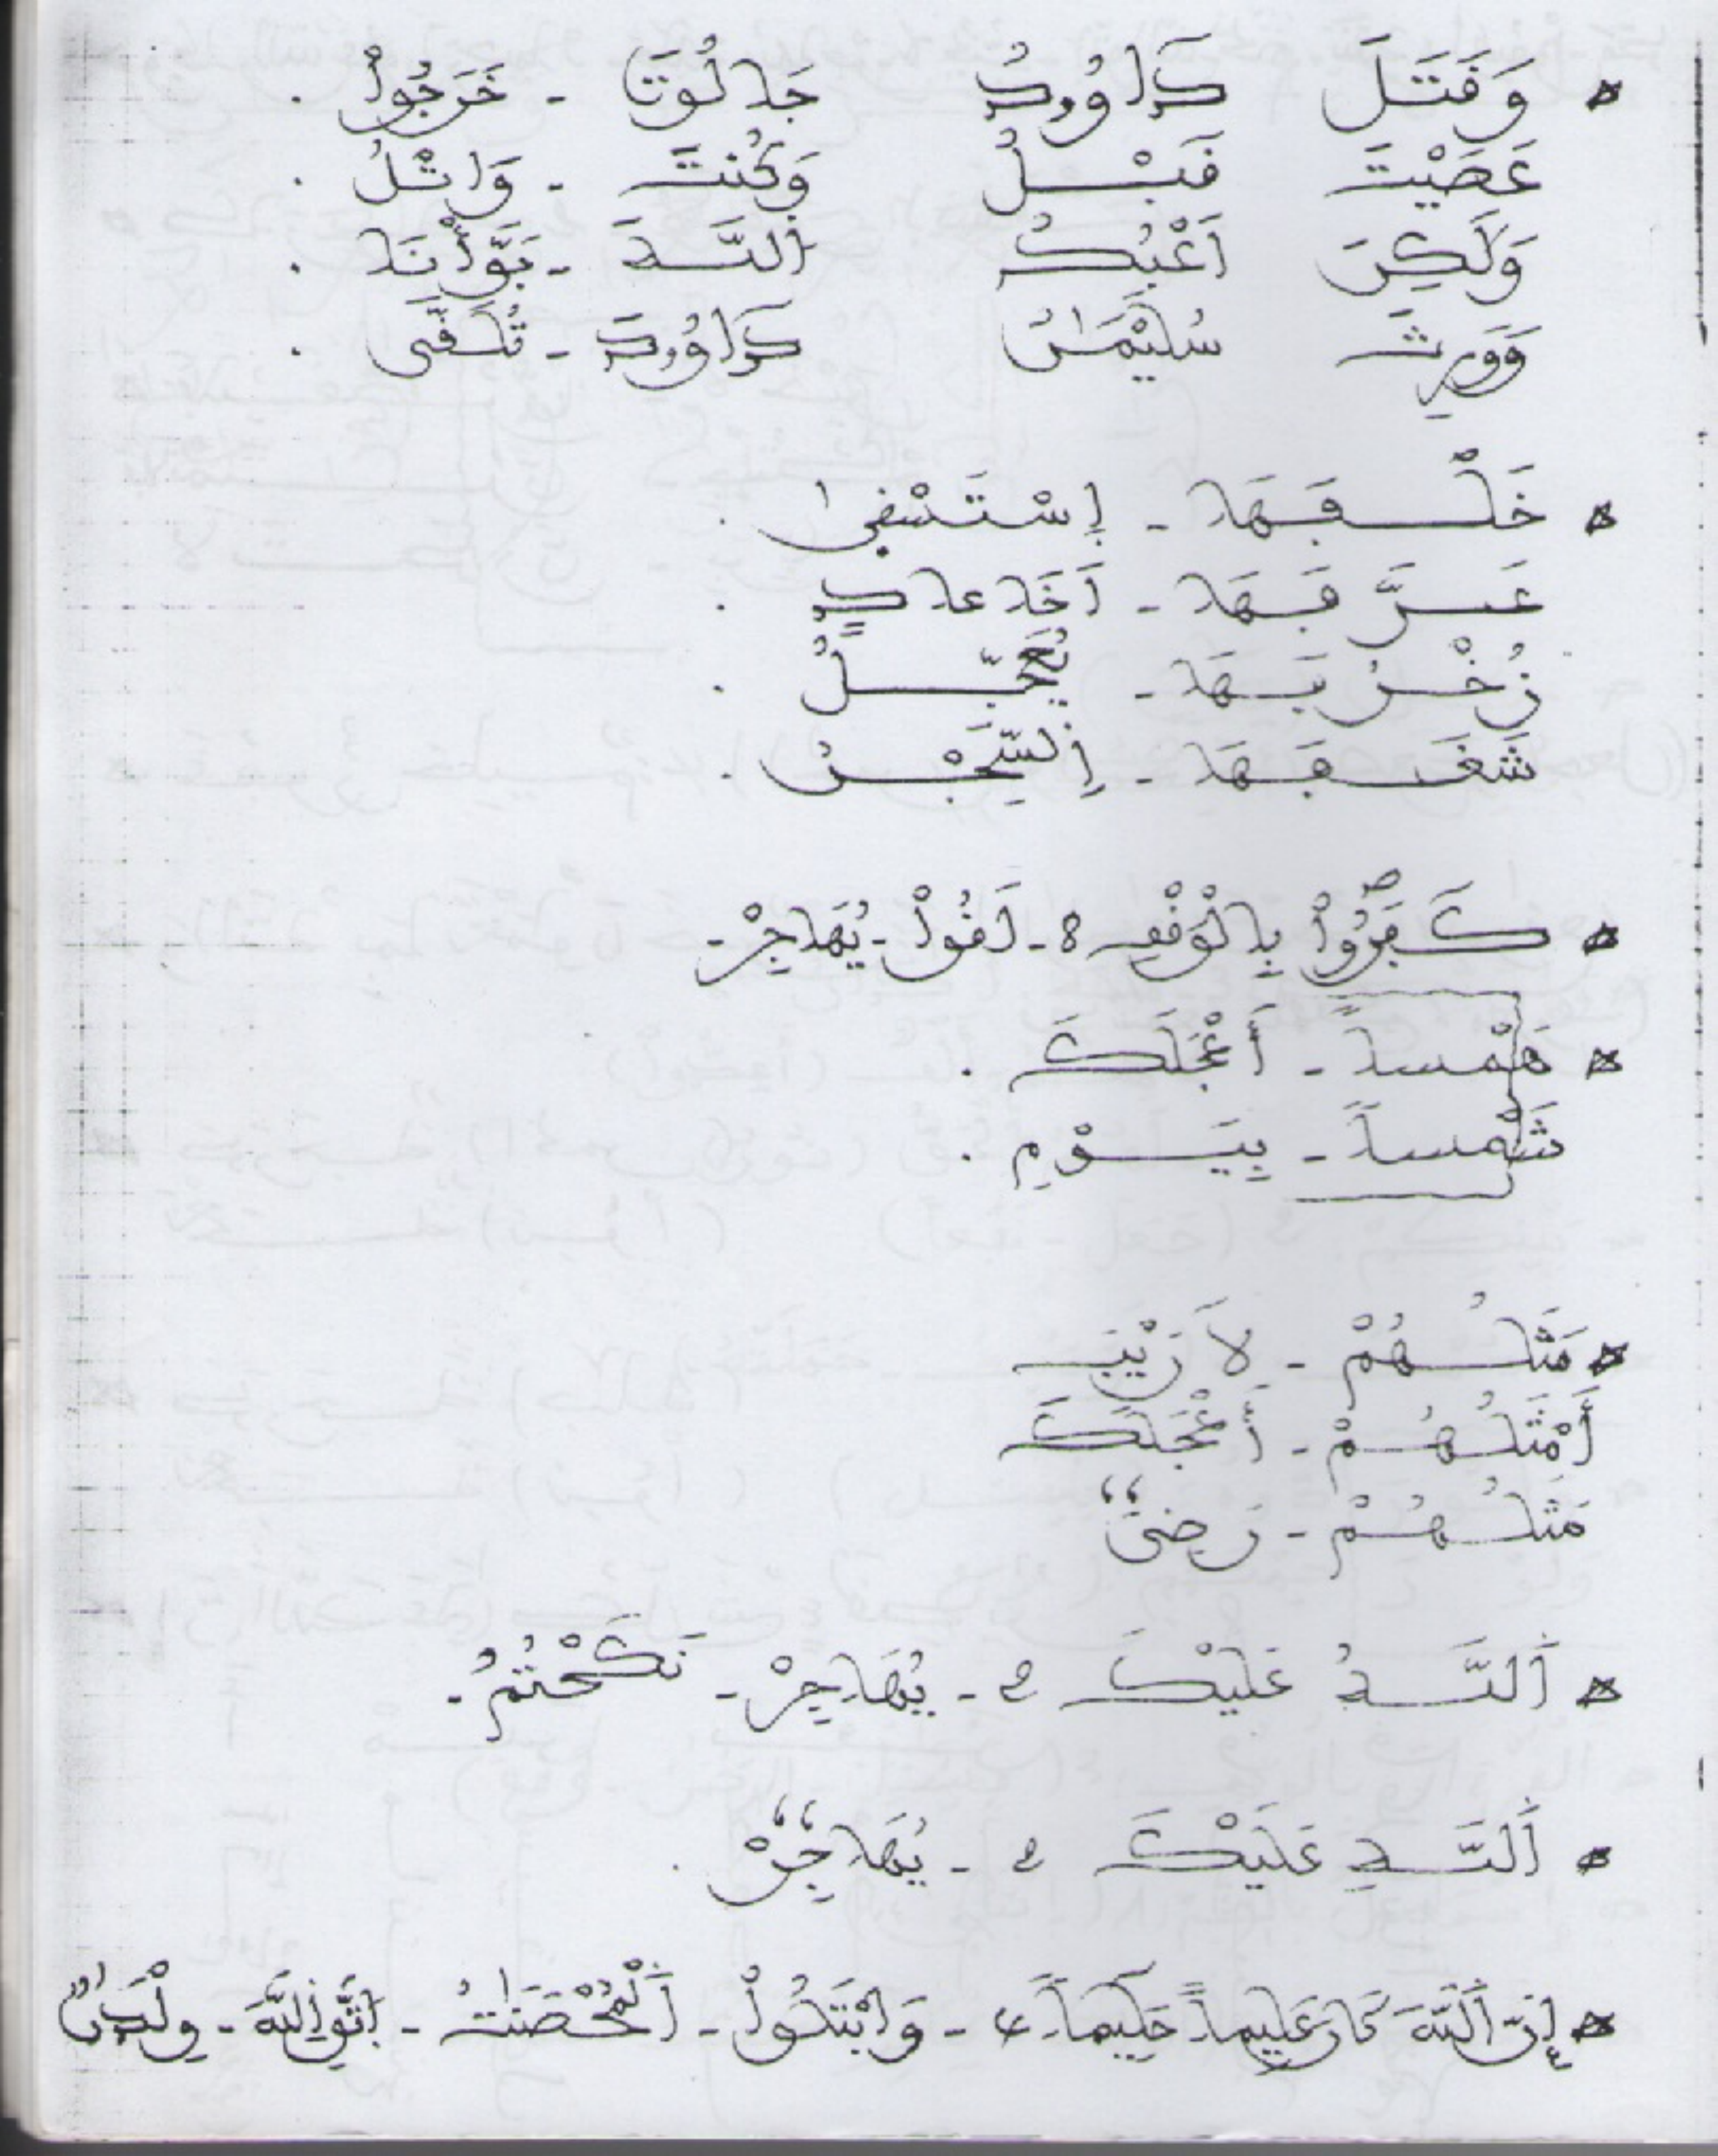 * وَقَتَلَ دَاوُودُ جَالُوتَ - خَرَجُواْ .
عَصَيْتَ قَبْلُ وَكُنتَ - وَاتْلُ .
وَلَكِنَ اَعْبُدُ اَللَّهَ - بَوَّأْنَا .
وَوَرِثَ سُلَيْمَٰنُ دَاوُودَ - تُلَقَّى .
* خَلْفَهَا - إسْتَسْقىٰ .
عَرَّفَهَا - أَخَا عادٍ .
زُخْرُفَهَا -
شَغَفَهَا - اِلسِّجْنُ .
* كَفَرُواْ 8 - لَقُواْ - يُهَاجِرْ -
* هَمْساً - أَعْجَلَكَ .
شَمْساً - بِيَوْمِ .
* مَثَلُهُمْ - لاَ رَيْبَ
أَمْثَلُهُمْ - أَعْجَلَكَ
مَثَلُهُمْ - رَضِىَ
* اَللَّهُ عَلَيْكَ 2 - يُهَاجِرْ - نَكَحْتُمُ .
* اَللَّهِ عَلَيْكَ 2 - يُهَاجِرْ .
* إِنَّ اَللَّهَ كَانَ عَلِيماً حَكِيماً 4 - وَابْتَلُواْ - اَلْمُحْصَنَٰتُ - اِتَّقِ اِللَّهَ - وِلْدَٰنٌ